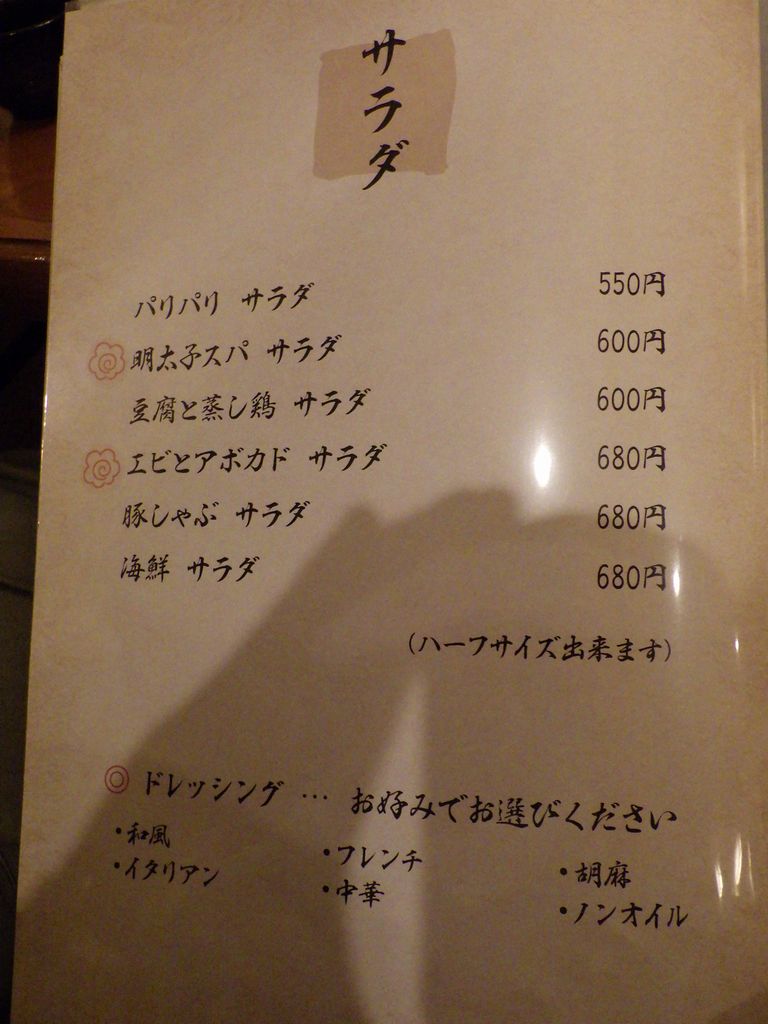 サラダ
パリパリ サラダ 550円
明太子スパ サラダ 600円
豆腐と蒸し鶏 サラダ 600円
エビとアボカド サラダ 680円
豚しゃぶ サラダ 680円
海鮮 サラダ 680円
(ハーフサイズ出来ます)
◎ ドレッシング … お好みでお選びください
・和風 ・フレンチ ・胡麻
・イタリアン ・中華 ・ノンオイル